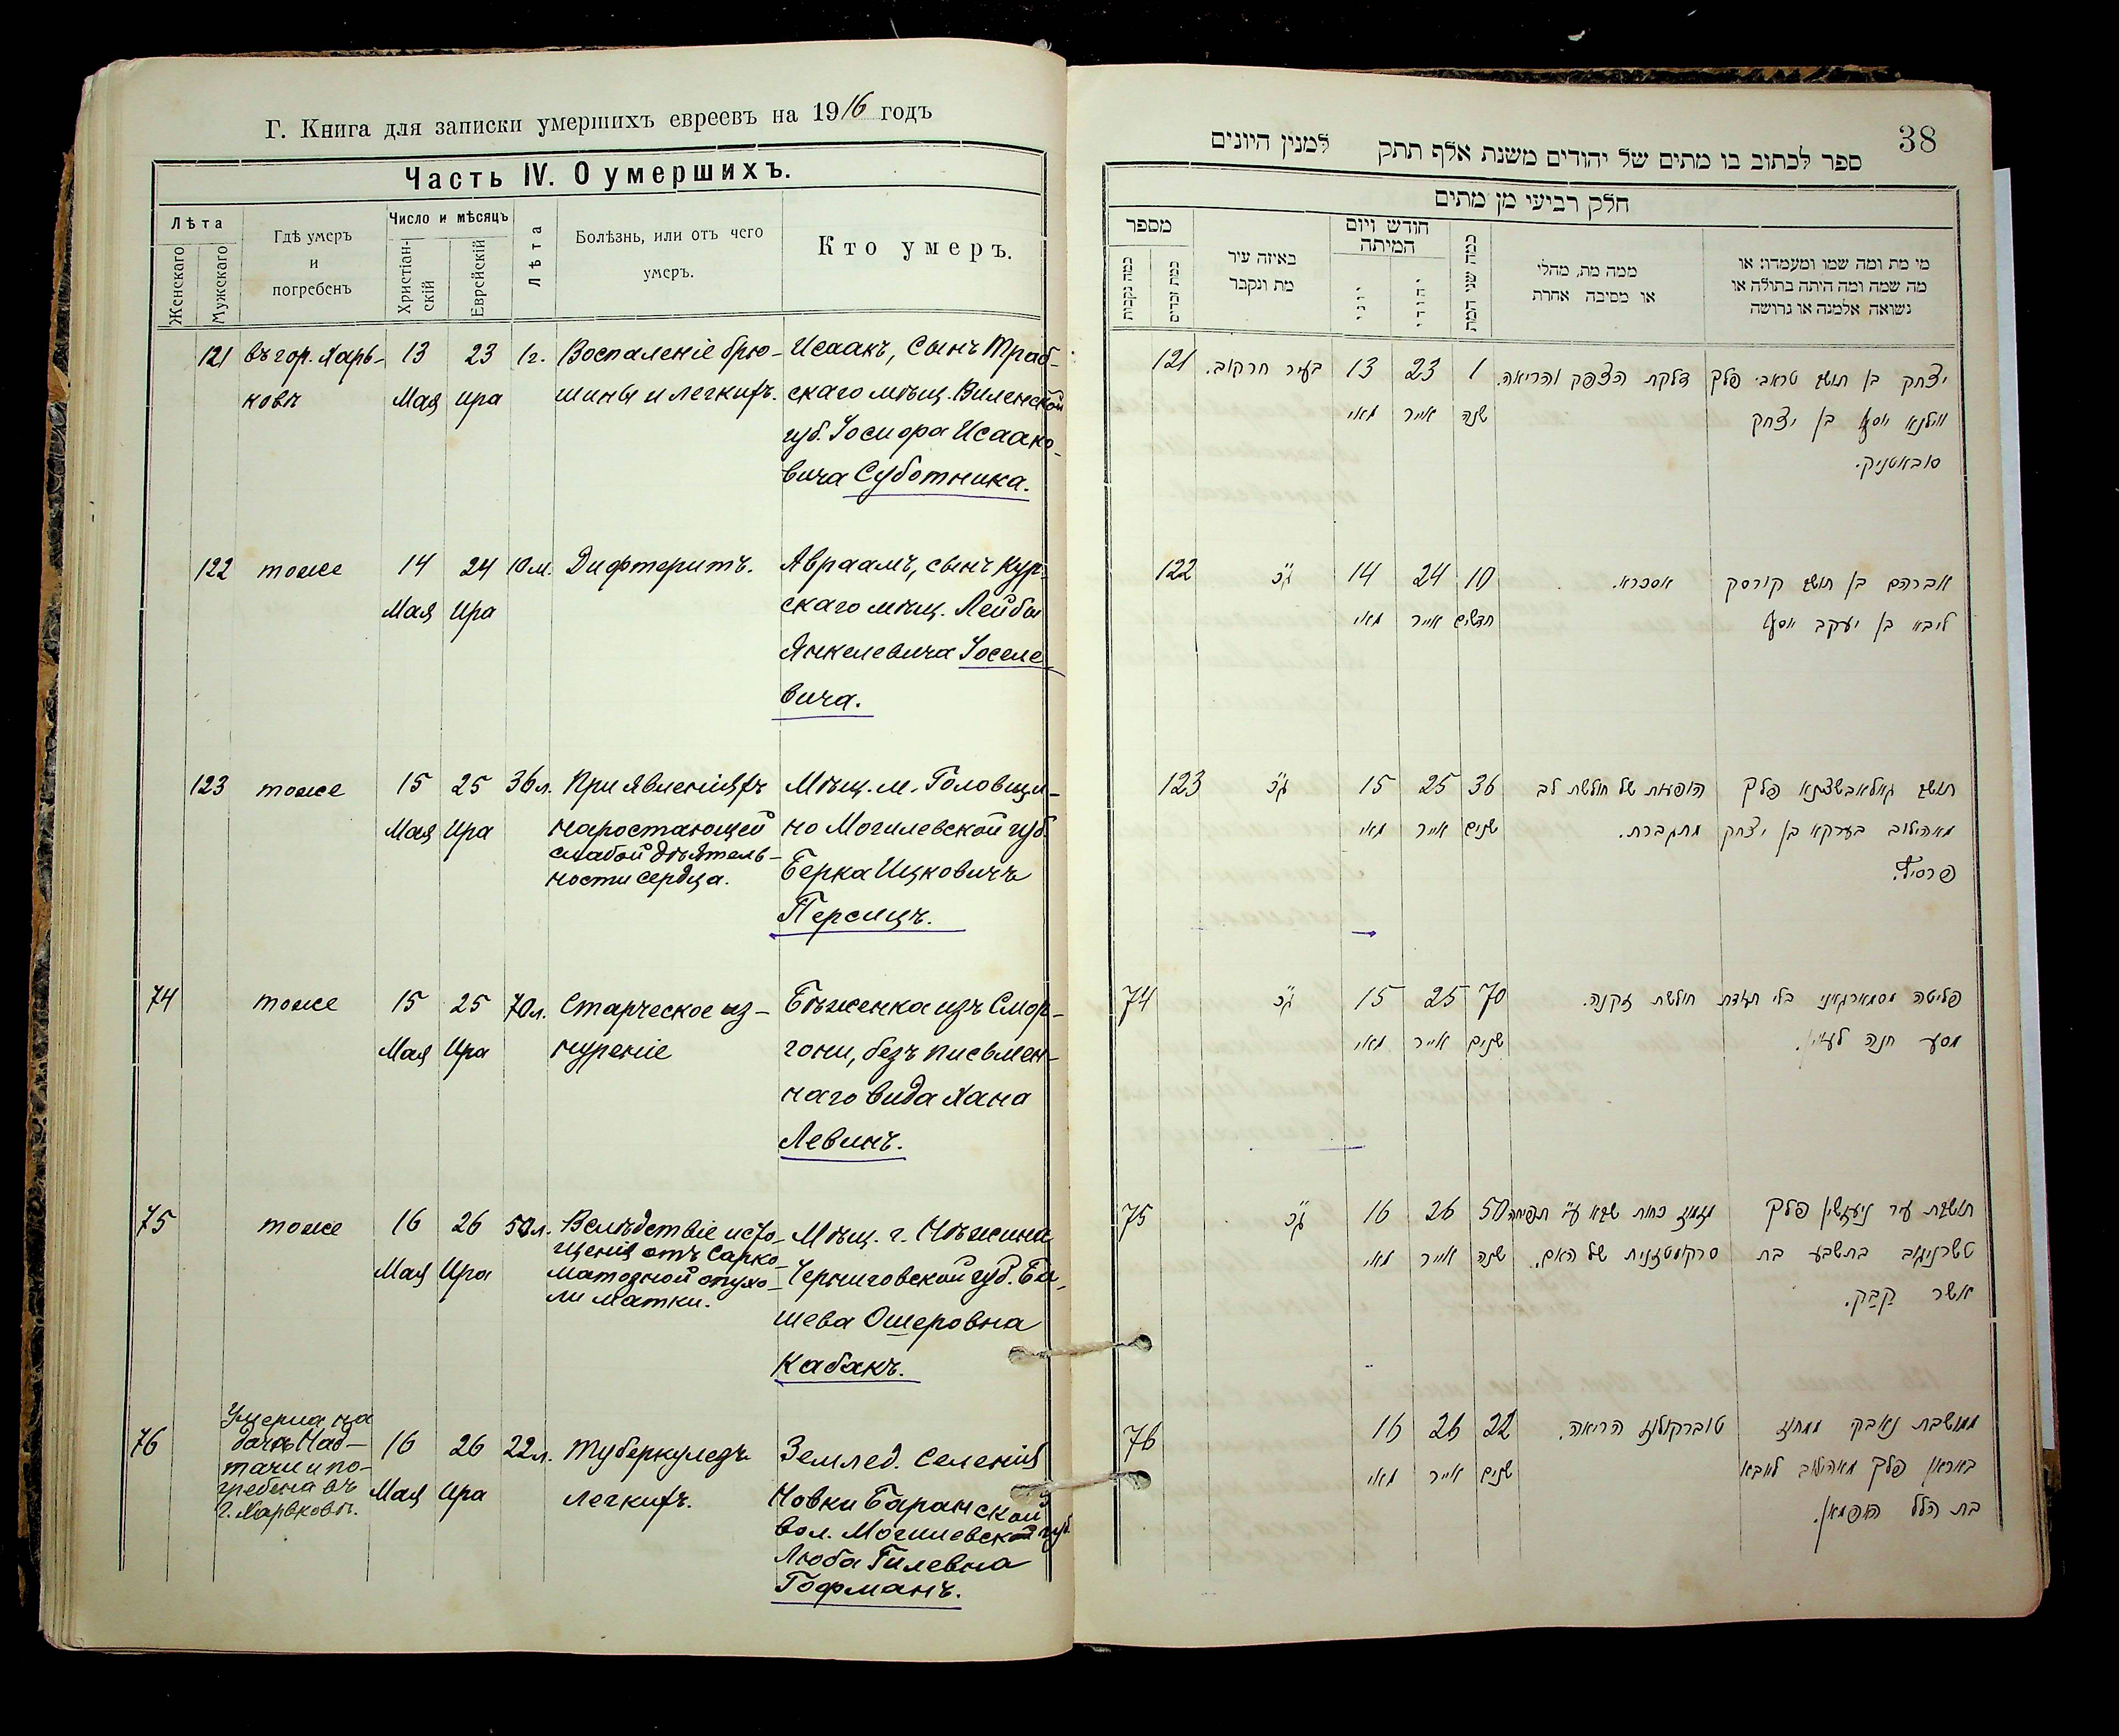 Г. Книга для записки умершихъ евреевъ на 1916 годъ
Часть IV. О умершихъ.
Лѣта
Женскаго
Мужскаго
Гдѣ умеръ
и
погребенъ
Число и мѣсяцъ
Христіан-
скій
Еврейскій
Лѣта
Болѣзнь, или отъ чего
умеръ.
Кто умеръ.
121 въ гор. Харь- 13 23 1г. Воспаленіе брю- Исаакъ, сынъ Траб-
ковѣ Мая Ира шины и легкихъ. скаго мѣщ. Виленской
губ. Іосифа Исаако-
вича Суботника.
122 тоже 14 24 10м. Дифтеритъ. Авраамъ, сынъ Кур-
Мая Ира скаго мѣщ. Лейбы
Янкелевича Іоселе-
вича.
123 тоже 15 25 36л. При явленіяхъ Мѣщ. м. Головщи-
Мая Ира наростающей но Могилевской губ.
слабой дѣятель- Берка Ицковичъ
ности сердца. Персицъ.
74 тоже 15 25 70л. Старческое из- Бѣженка изъ Смор-
Мая Ира нуреніе гони, безъ письмен-
наго вида Хана
Левинъ.
75 тоже 16 26 50л. Вслѣдствіе исто- Мѣщ. г. Нѣжина
Мая Ира щенія отъ сарко- Черниговской губ. Ба-
матозной опухо- шева Ошеровна
ли матки. Кабакъ.
76 Умерла на
дачѣ 16 26 22л. Туберкулезъ Землед. селенія
и по- Мая Ира легкихъ. Новки Баранской
гребена въ вол. Могилевской губ.
г. Харьковѣ. Люба Гилевна
Гофманъ.
38
ספר לכתוב בו מתים של יהודים משנת אלף תתק למנין היונים
חלק רביעי מן מתים
מספר
כמה נקבות
כמה זכרים
באיזה עיר
מת ונקבר
חודש ויום
המיתה
יוני
יהודי
כמה שני המת
ממה מת, מחלי
או מסיבה אחרת
מי מת ומה שמו ומעמדו: או
מה שמה ומה היתה בתולה או
נשואה אלמנה או גרושה
יצחק בן תושב טראבי פלך דלקת הצפק והריאה. 1 23 13 בעיר חרקוב. 121
ווילנא יוסף בן יצחק שנה אייר מאי
סובאטניק.
אברהם בן תושב קורסק אסכרא. 10 24 14 122
ליבא בן יעקב יוסף חדשים אייר מאי
תושב פלך הופעות של חולשת לב 36 25 15 123
מאהילוב בערקא בן יצחק מתגברת. שנים אייר מאי
פרסיץ.
פליטה בלי תעודת חולשת זקנה. 70 25 15 74
מסע חנה לעווין. שנים אייר מאי
תושבת עיר ניעזשין פלך 50 26 16 75
טשרניגוב בתשבע בת של האם. שנה אייר מאי
אשר קבק.
ממושבת נאבקי ממחוז טוברקולוז הריאה. 22 26 16 76
באראן פלך מאהילוב ליובא שנים אייר מאי
בת הלל האפמאן.